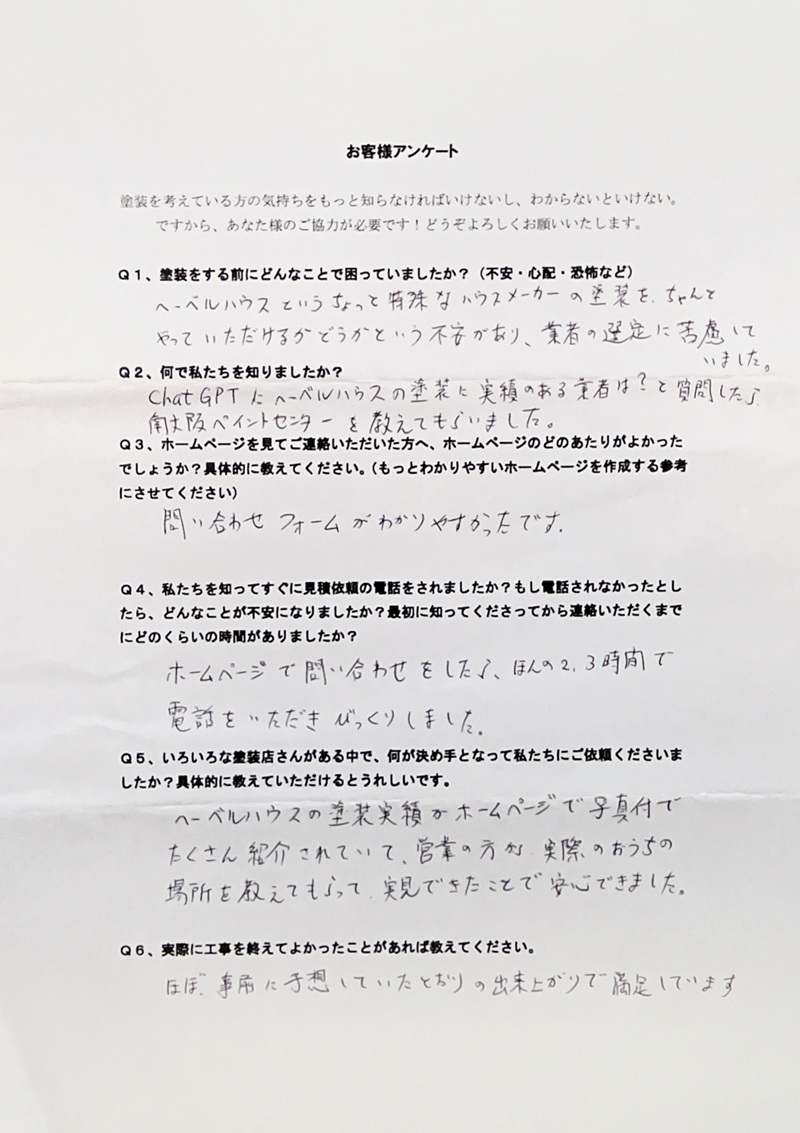 お客様アンケート
塗装を考えている方の気持ちをもっと知らなければいけないし、わからないといけない。
ですから、あなた様のご協力が必要です！どうぞよろしくお願いいたします。
Ｑ１、塗装をする前にどんなことで困っていましたか？（不安・心配・恐怖など）
ヘーベルハウスというちょっと特殊なハウスメーカーの塗装を、ちゃんと
やっていただけるかどうかという不安があり、業者の選定に苦慮して
いました。
Ｑ２、何で私たちを知りましたか？
ChatGPTにヘーベルハウスの塗装に実績のある業者は？と質問したら
南大阪ペイントセンターを教えてもらいました。
Ｑ３、ホームページを見てご連絡いただいた方へ、ホームページのどのあたりがよかった
でしょうか？具体的に教えてください。（もっとわかりやすいホームページを作成する参考
にさせてください）
問い合わせフォームがわかりやすかったです。
Ｑ４、私たちを知ってすぐに見積依頼の電話をされましたか？もし電話されなかったとし
たら、どんなことが不安になりましたか？最初に知ってくださってから連絡いただくまで
にどのくらいの時間がありましたか？
ホームページで問い合わせをしたら、ほんの2,3時間で
電話をいただきびっくりしました。
Ｑ５、いろいろな塗装店さんがある中で、何が決め手となって私たちにご依頼くださいま
したか？具体的に教えていただけるとうれしいです。
ヘーベルハウスの塗装実績がホームページで写真付で
たくさん紹介されていて、営業の方が、実際のおうちの
場所を教えてもらって、実見できたことで安心できました。
Ｑ６、実際に工事を終えてよかったことがあれば教えてください。
ほぼ、事前に予想していたとおりの出来上がりで満足しています